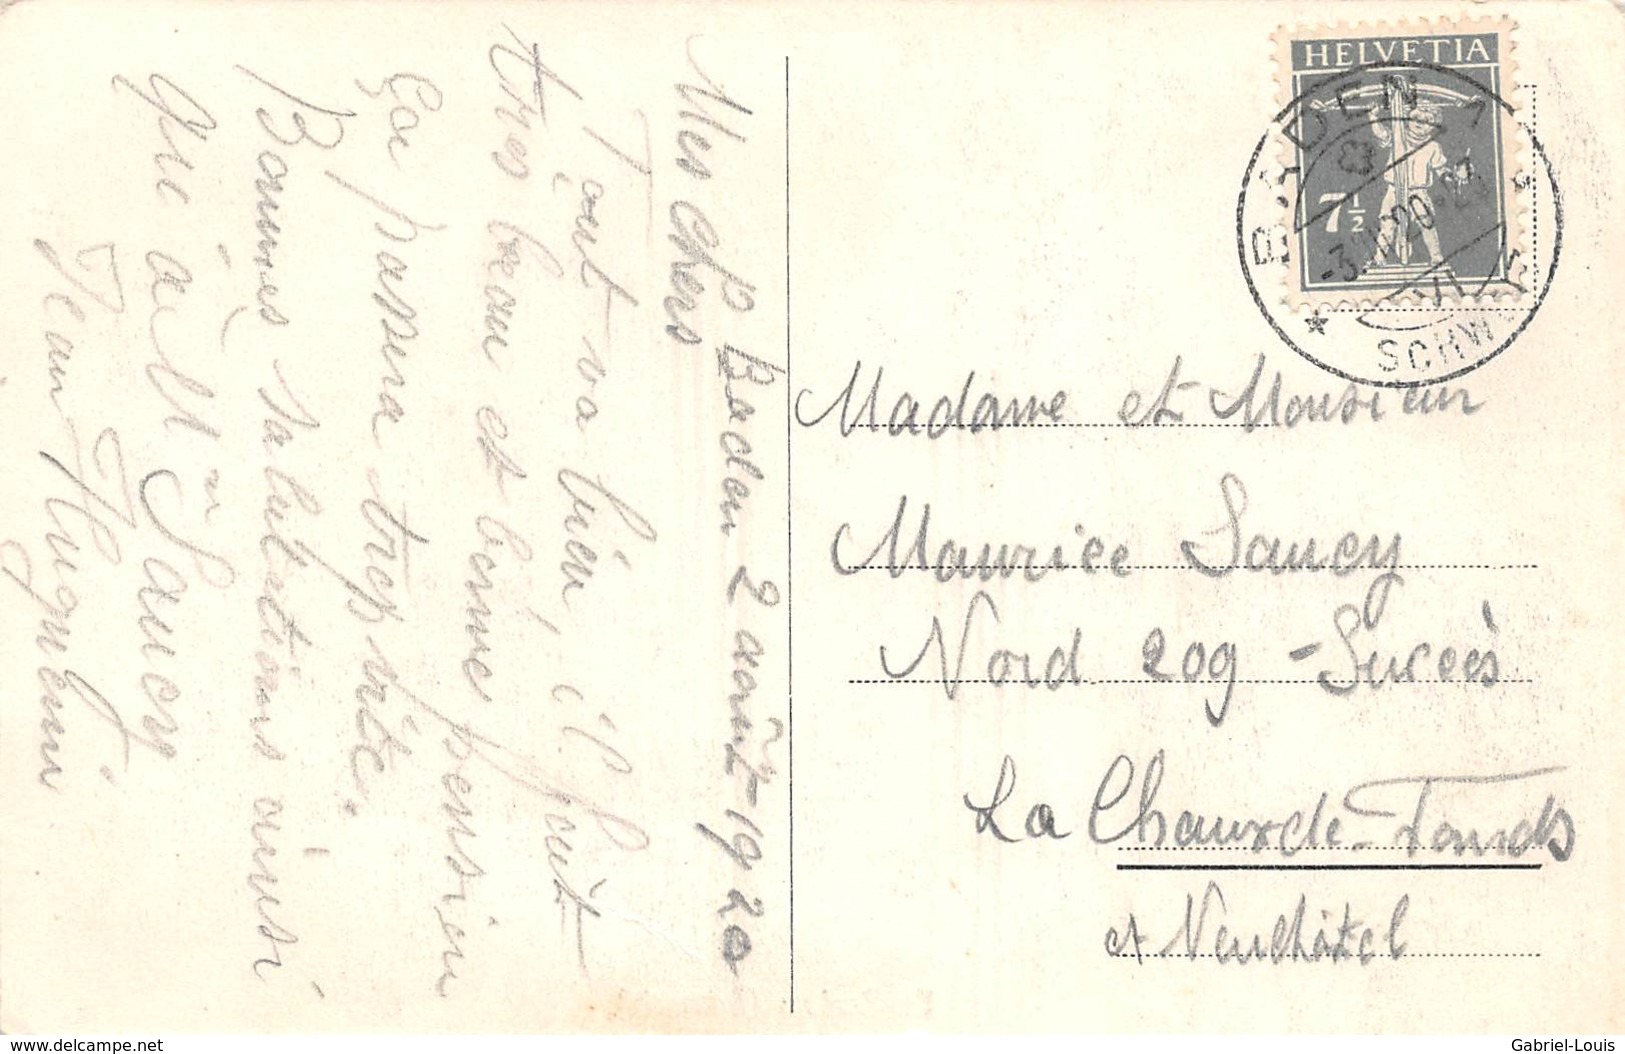 Baden 2 août-1920
Mes chers
Tout va bien, il fait
très beau et bonne pension
ça passera très vite.
Bonnes salutations ainsi
que à Mm Saucy
Jean Huguenin
HELVETIA
7 1/2
BADEN 1
SCHW
Madame et Monsieur
Maurice Saucy
Nord 209 - Succès
La Chaux-de-Fonds
ct Neuchâtel
www.delcampe.net
Gabriel-Louis